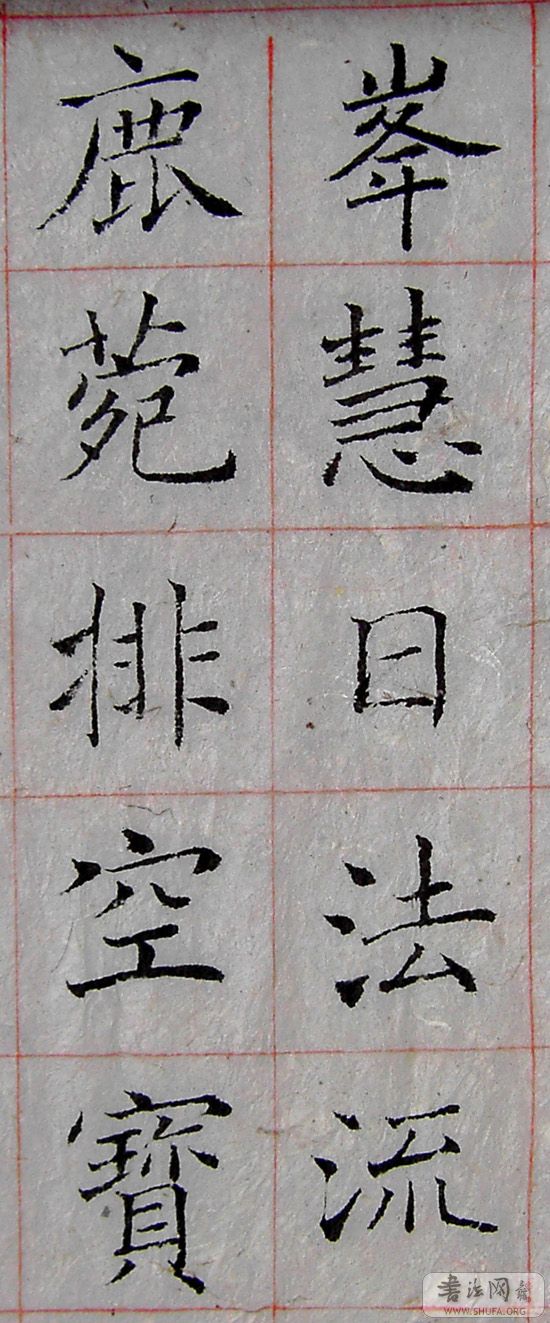 峯慧日法流
鹿菀排空寶
書法网
WWW.SHUFA.ORG